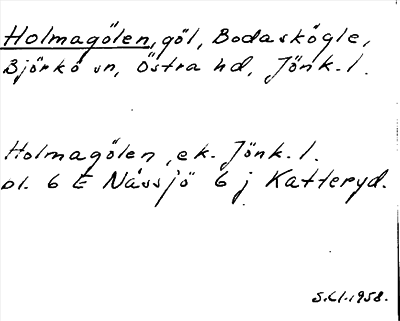 Holmagölen, göl, Bodaskögle,
Björkö sn, Östra hd, Jönk. l.
Holmagölen, ek. Jönk. l.
bl. 6 E Nässjö 6 j Katteryd.
1958.